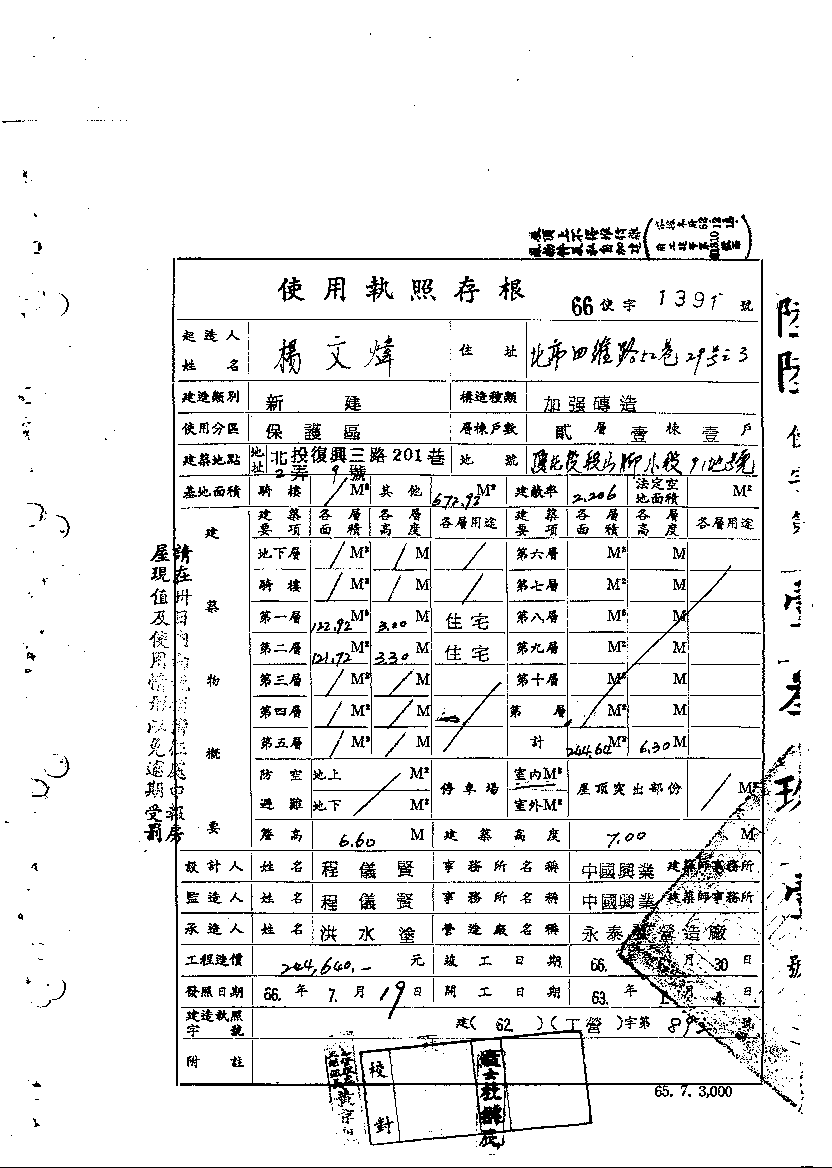 使用執照存根
66 使字 1391 號
起造人姓名 楊文煒 住址 北市四維路52巷29号之3
建造類別 新建 構造種類 加强磚造
使用分區 保護區 層棟戶數 貳層壹棟壹戶
建築地點 地址 北投復興三路201巷2弄9號 地號 小段91地號
基地面積 騎樓 / M² 其他 677.92 M² 建蔽率 2.206 法定空地面積 M²
建築物概要
建築要項 各層面積 各層高度 各層用途 建築要項 各層面積 各層高度 各層用途
地下層 / M² / M / 第六層 M² M
騎樓 / M² / M / 第七層 M² M
第一層 122.92 M² 3.00 M 住宅 第八層 M² M
第二層 121.72 M² 3.30 M 住宅 第九層 M² M
第三層 / M² / M 第十層 M² M
第四層 / M² / M 第 層 M² M
第五層 / M² / M 計 244.64 M² 6.30 M
防空避難 地上 M² 地下 M² 停車場 室内M² 室外M² 屋頂突出部份 / M²
簷高 6.60 M 建築高度 7.00 M
設計人 姓名 程儀賢 事務所名稱 中國興業建築師事務所
監造人 姓名 程儀賢 事務所名稱 中國興業建築師事務所
承造人 姓名 洪水塗 營造廠名稱 永泰 營造廠
工程造價 244,640.- 元 竣工日期 66. 月 30 日
發照日期 66. 年 7. 月 19 日 開工日期 63. 年 月 日
建造執照字號 建( 62 )(工營)字第 號
附註
校對
65. 7. 3,000